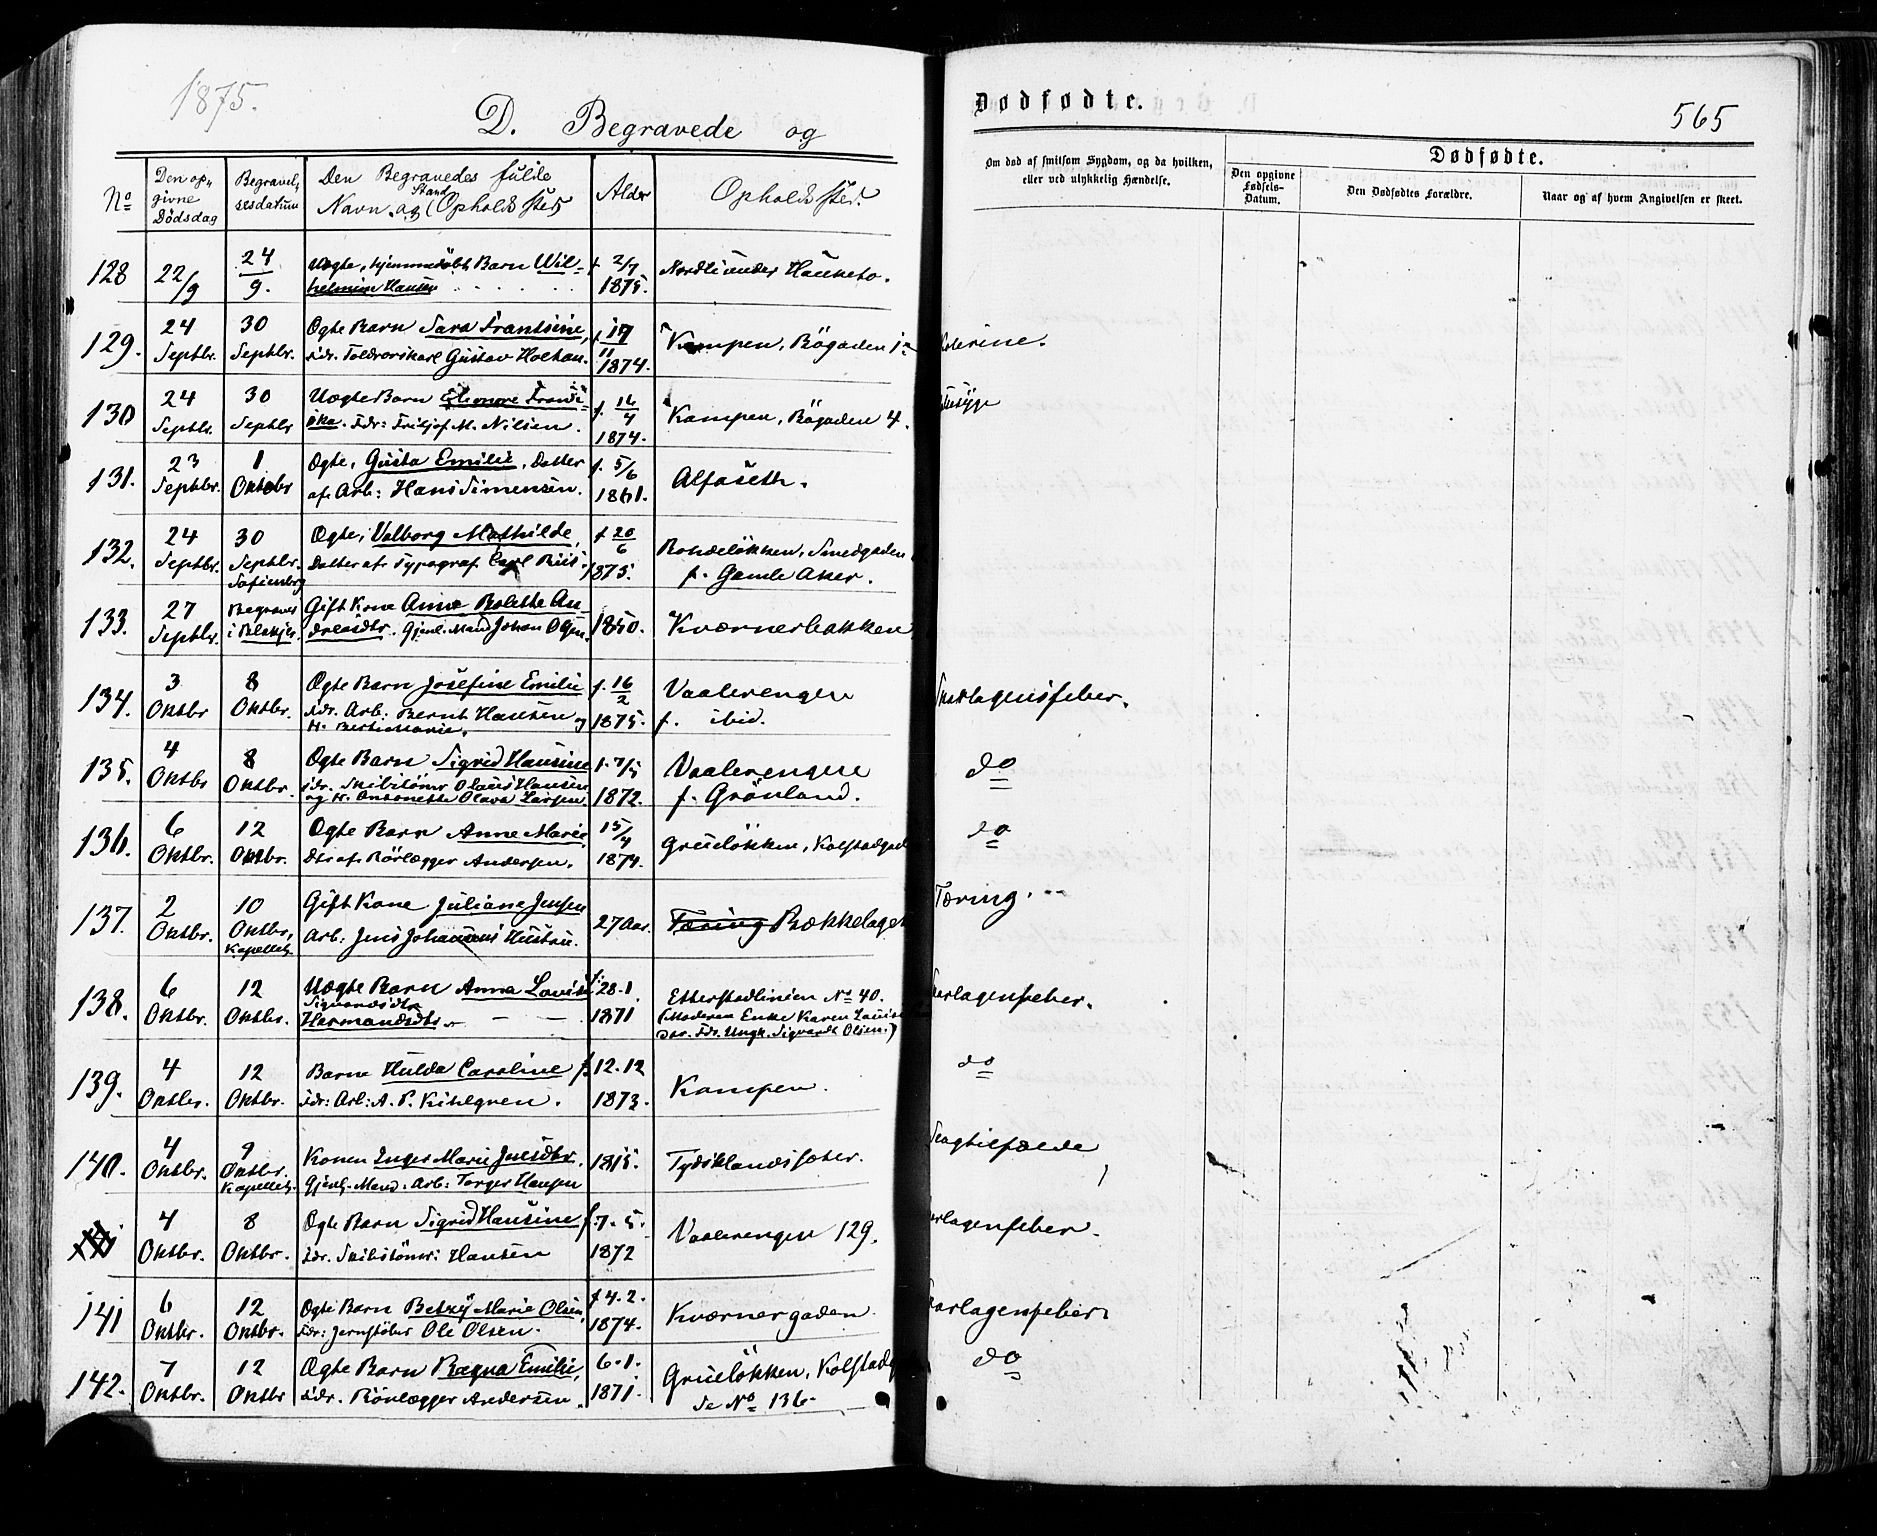 1875.
D. Begravede og
No
Den op-
givne
Dödsdag
Begravel-
sesdatum
Den Begravedes fulde
Stand
Navn og Opholdssted
Alder
Opholdssted.
128 22/9 24/9. Uægte, hjemmedöbt Barn Wil-
helmine Hansen f. 2/7 1875. Nordli under Hauketo.
129. 24 Septbr. 30 Septbr. Ægte Barn Sara Frantsine,
Fdr. Toldrorskarl Gustav Holtan. f. 17/11 1874. Kampen, Bögaden
130 24 Septbr. 30 Septbr Uægte Barn Elenore Frandsi-
ska. Fdr: Fritjof M. Nilsen. f. 16/4 1874. Kampen, Bögaden 4.
131. 23 Septbr. 1 Oktobr Ægte, Gusta Emilie, Datter
af Arb: Hans Simensen. f. 5/6 1861. Alfaseth.
132. 24 Septbr. 30 Septbr. Sofienberg Ægte, Valborg Mathilde,
Datter af Typograf Carl Riis. f 20/6 1875. Rodeløkken, Smedgaden
f. Gamle Aker.
133. 27 Septbr. Begraves i Gift Kone Anne Bolette An-
dreasdtr. Gjenl. Mand Johan Olsen. 1850. Kværnerbakken
134. 3 Oktbr 8 Oktbr. Ægte Barn Josefine Emilie
Fdr. Arb: Bernt Hansen og
H. Berthe Marie. f. 16/2 1875. Vaalerengen
f. ibid.
135. 4 Oktbr 8 Oktbr. Ægte Barn Sigrid Hansine
Fdr. Skibstömr Olaus Hansen
og H. Antonette Olava Larsen. f. 7/5 1872. Vaalerengen
f. Grönland.
136. 6 Oktbr. 12 Oktbr. Ægte Barn Anne Marie,
Dtr af Rörlægger Andersen. 15/4 1874. Grueløkken, Kolstadgad
137. 2 Oktbr. 10 Oktbr, Kapellet. Gift Kone Juliane Jensen
Arb: Jens Johansens Hustru. 27 Aar. Tæring Bækkelaget
138. 6 Oktbr. 12 Oktbr. Uægte Barn Anna Lovise
Sigvardsdtr
Hermandsdtr. f. 28.1. 1871 Etterstadlinien No 40.
(Moderen Enke Karen Louise
Fdr. Ungk. Sigvardt Olsen.)
139. 4 Oktbr. 12 Oktbr. Barnet Hulda Caroline
Fdr: Arb: A. P. Kihlgren. f. 12.12 1873. Kampen.
140. 4 Oktbr. 9 Oktbr. Kapellet. Konen Inger Marie Jensdtr.
Gjenl. Mand: Arb: Torger Hansen 1815. Tydsklandsfæter.
4 Oktbr. 8 Oktbr. Ægte Barn Sigrid Hansine
Fdr. Skibstömr: Hansen f. 7.5. 1872 Vaalerengen 129.
141 6 Oktbr. 12 Oktbr. Ægte Barn Betzy Marie Olsen,
Fdr: Jernstöber Ole Olsen. f 4.2. 1874. Kværnergaden.
142. 7 Oktbr. 12 Oktbr Ægte Barn Ragna Emilie,
Fdr. Rörlægger Andersen. 6.1. 1871. Grueløkken, Kolstadg
Se No 136.
Dødfødte.
565
Om død af smitsom Sygdom, og da hvilken,
eller ved ulykkelig Hændelse.
Dødfødte.
Den opgivne
Fødsels-
Datum.
Den Dødfødtes Forældre.
Naar og af hvem Angivelsen er skeet.
Skarlagensfeber.
do
do
Tæring.
arlagensfeber.
do
Slagtilfælde
rlagensfeber.
arlagensfeber
do